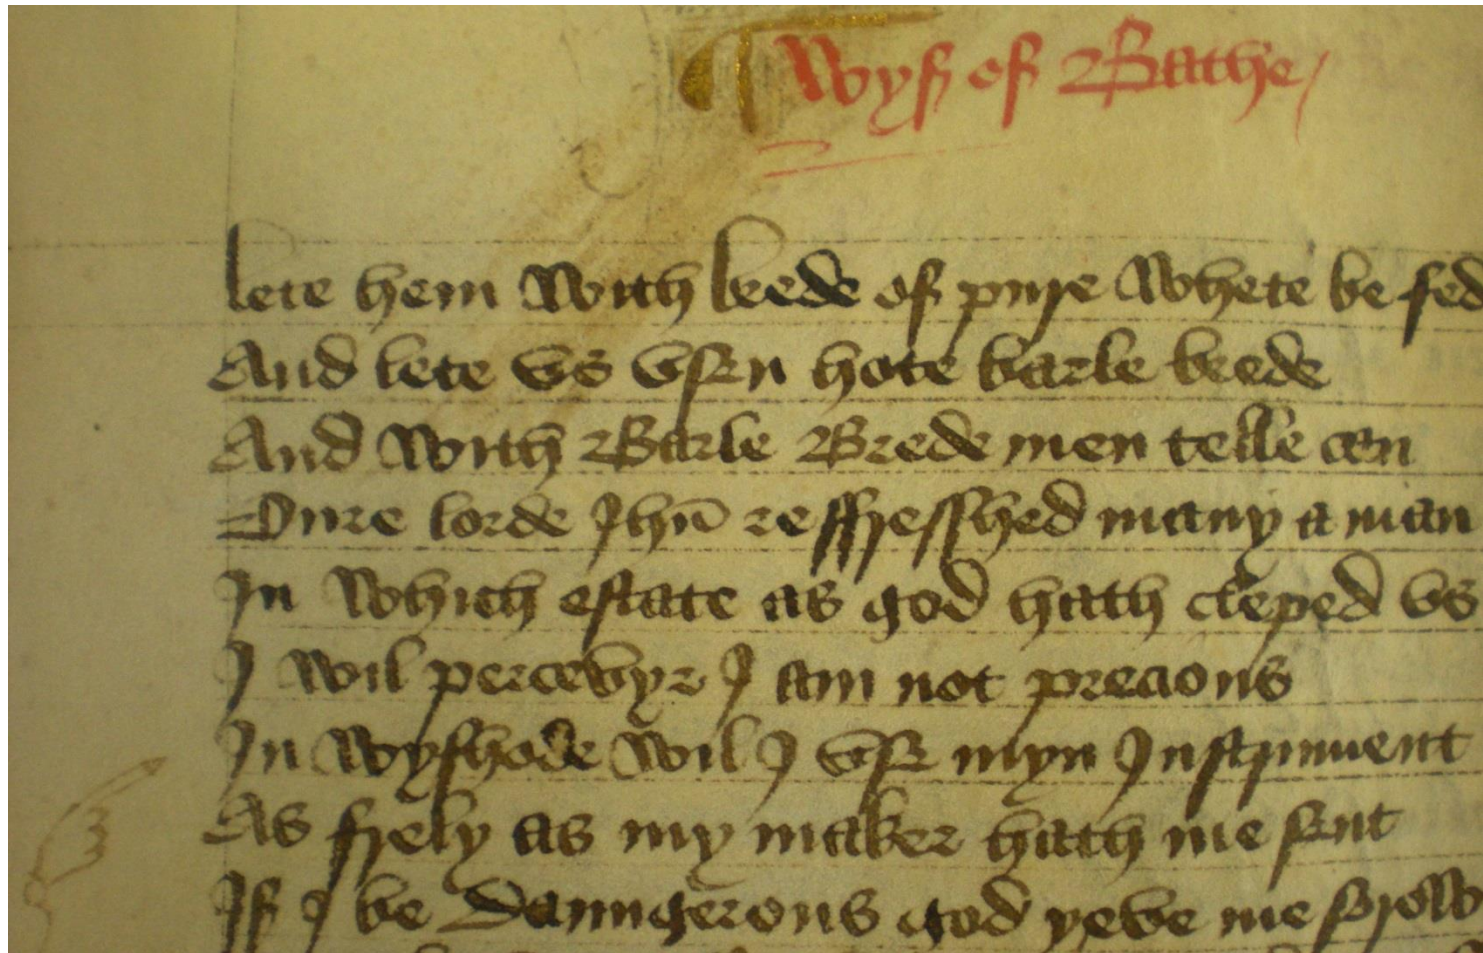 ¶ Wyf of Bathe
lete hem with brede of pure whete be fed
And lete vs vsen hote barle brede
And with Barle Brede men telle can
Oure lorde Jhũ reffresshed many a man
In which estate as god hath cleped vs
I wil percevyr I am not precious
In wyfhode wil I vse myn Instrument
As frely as my maker hath me sent
If I be Daungerous god yeve me sorow